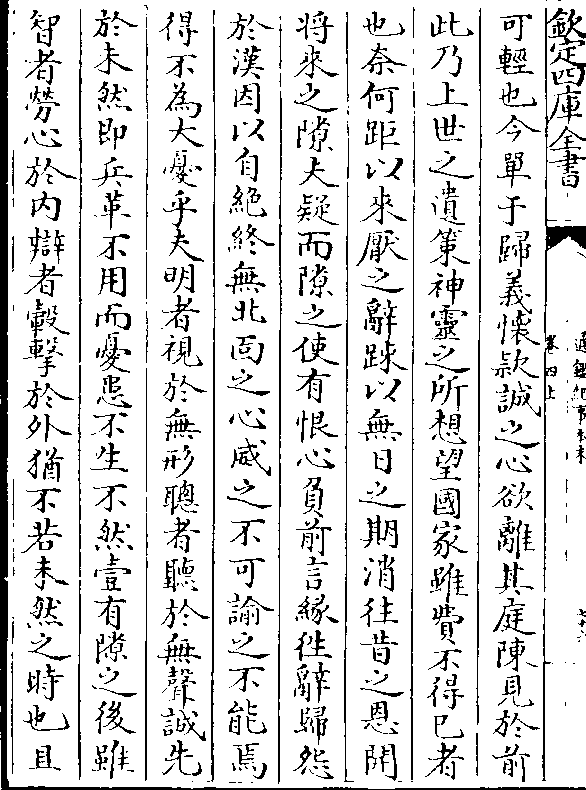 欽定四庫全書
通鑑紀事本末
卷四上
可輕也今單于歸義懷款誠之心欲離其庭陳見於前
此乃上世之遺策神靈之所想望國家雖費不得已者
也奈何距以來厭之辭踈以無日之期消往昔之恩開
將來之隙夫疑而隙之使有恨心負前言緣徃辭歸怨
於漢因以自絶終無北面之心威之不可諭之不能焉
得不為大憂乎夫明者視於無形聰者聽於無聲誠先
於未然即兵革不用而憂患不生不然壹有隙之後雖
智者勞心於内辯者轂擊於外猶不若未然之時也且